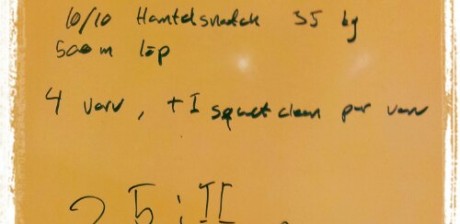 10/10 Hantelsnatch 35 kg
500 m löp
4 varv, + 1 squat clean per varv
25: